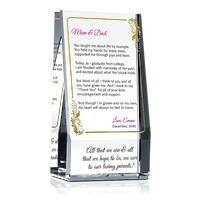 Mom & Dad:
You taught me about life by example,
You held my hands for many years,
supported me through joys and tears.
Today, as I graduate from college,
I am flooded with memories of the past,
and excited about what the future holds.
But Most of all, I think of you and all
you have given me. And I want to say
"Thank You" for all of your love,
encouragement and support.
And though I'm grown and on my own,
my heart will always be tied to home.
Love, Emma
December, 2045
All that we are & all
that we hope to be, we owe
to our loving parents!